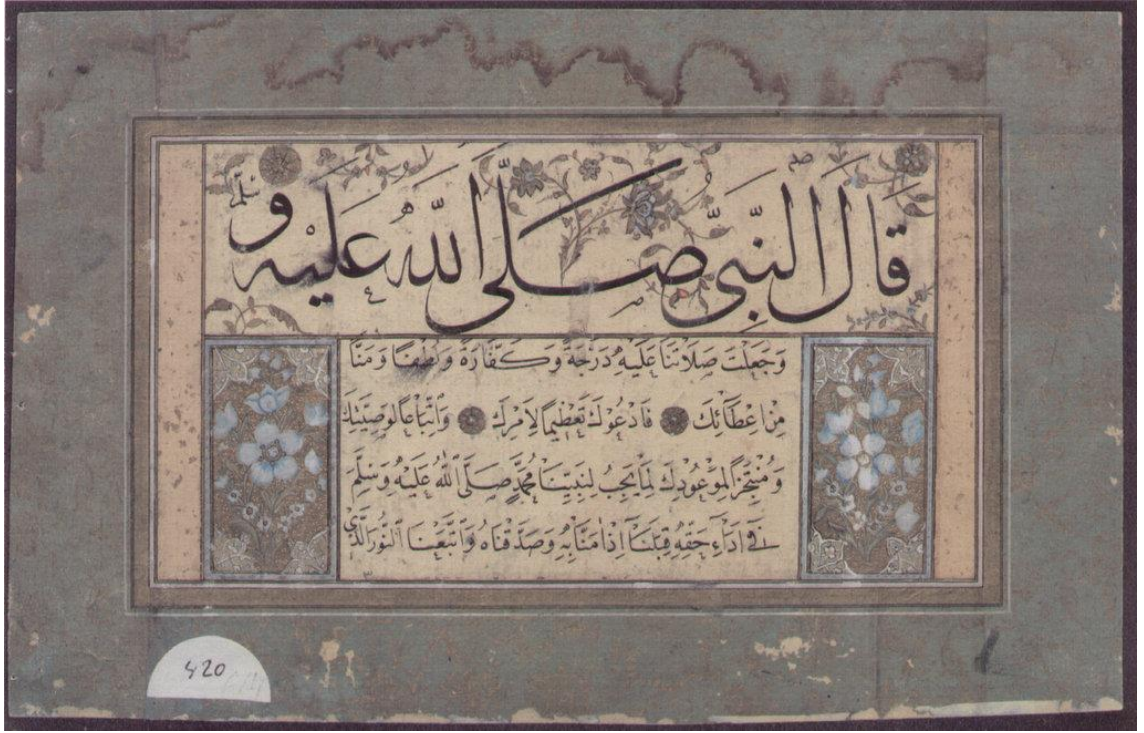 قَالَ النَّبِيُّ صَلَّى اللّٰهُ عَلَيْهِ وَسَلَّمَ
وَجَعَلْتَ صَلَاتَنَا عَلَيْهِ دَرَجَةً وَكَفَّارَةً وَلُطْفًا وَمَنًّا
مِنْ اِعْطَائِكَ فَاَدْعُوكَ تَعْظِيمًا لِاَمْرِكَ وَاتِّبَاعًا لِوَصِيَّتِكَ
وَمُنْتَجِزًا لِمَوْعُودِكَ لِمَا يَجِبُ لِنَبِيِّنَا مُحَمَّدٍ صَلَّى اللّٰهُ عَلَيْهِ وَسَلَّمَ
فِي اَدَاءِ حَقِّهِ قِبَلَنَا اِذْ اٰمَنَّا بِهِ وَصَدَّقْنَاهُ وَاتَّبَعْنَا النُّورَ الَّذِي
420